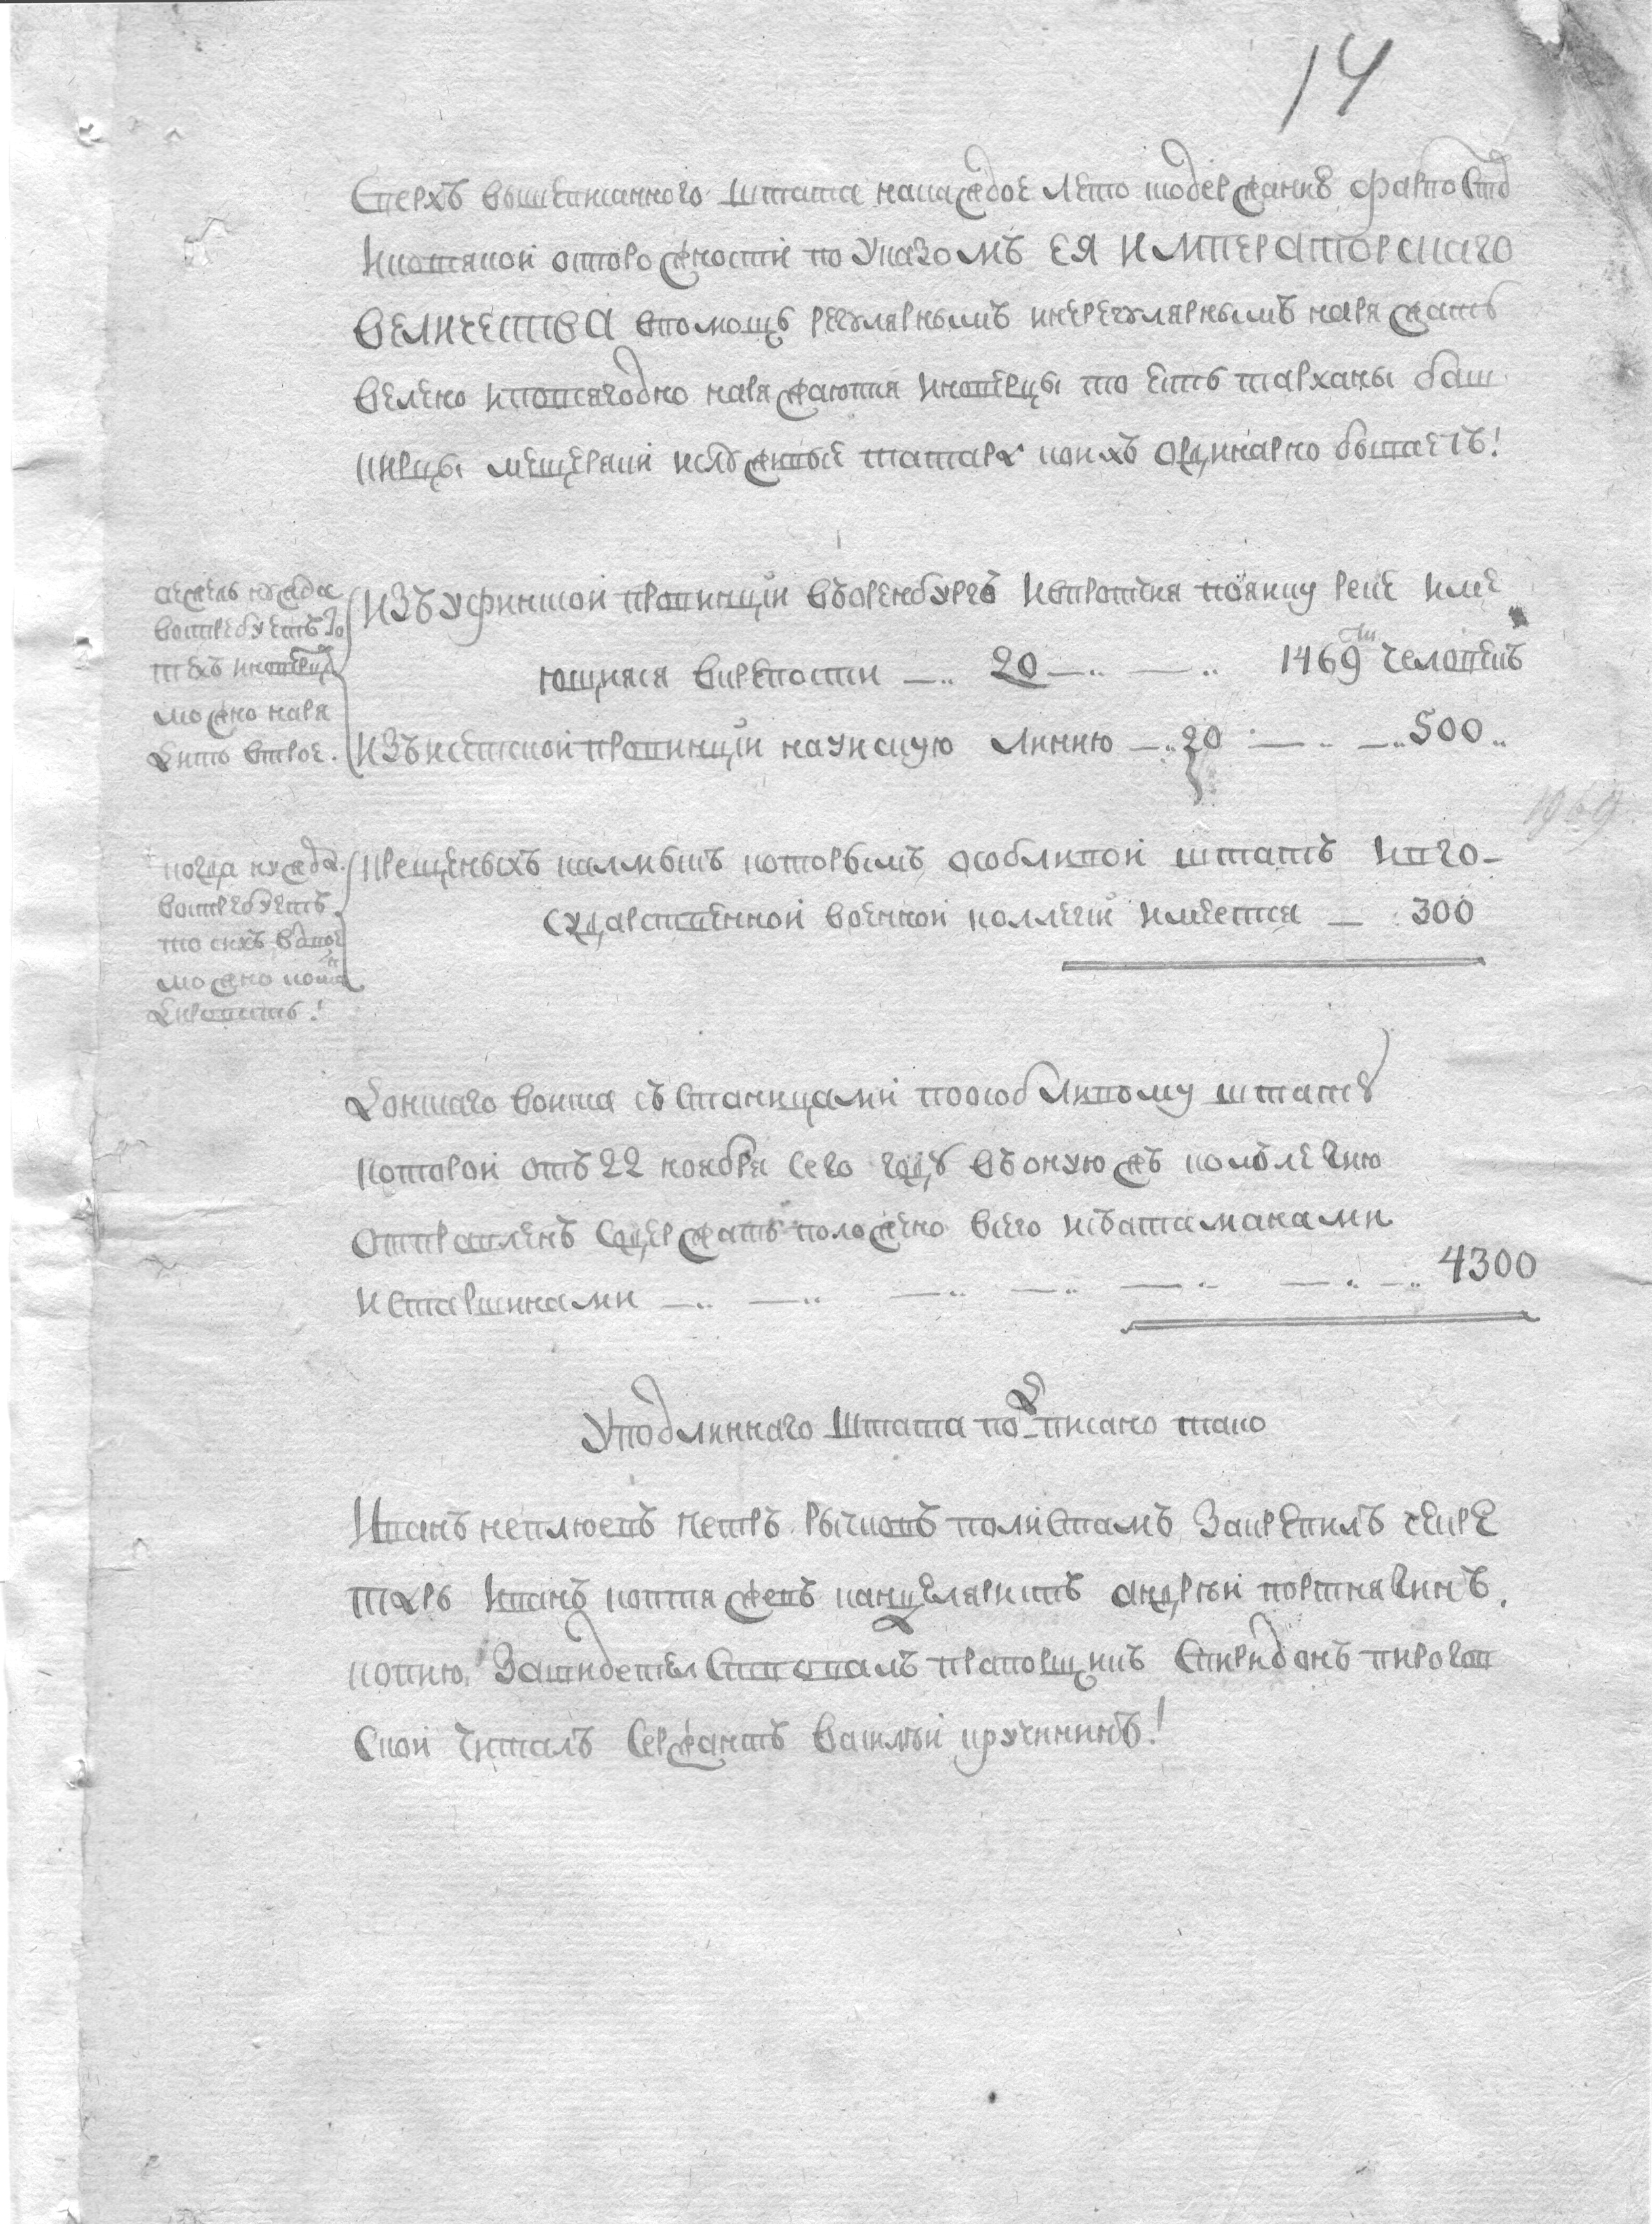 14
Сверхъ вышеписанного штата накаждое лето ксодержанию фарпостов
ивсякой осторожности по Указомъ ЕЯ ИМПЕРАТОРСКАГО
ВЕЛИЧЕСТВА впомощь регулярнымъ инерегулярнымъ наряжать
велено ивсягодно наряжаются иноверцы то есть тарханы баш
кирцы мещеряки ислужилые татара коихъ ординарно бываетъ!
ежели нужда
востребуетъ то
техъ иноверцов
можно наря
дить втрое.
ИЗЪ уфинской провинции въоренбургъ ивпротчия пояику реке име
ющияся вкрепости — 20 — — 1469 человекъ
ИЗЪ исетской провинции науискую линию — 20 — — 500
1969
когда нужда
востребуетъ
то сихъ вдвое
можно кома
дировать!
Крещеныхъ калмыкъ которымъ особливой штатъ вго-
сударственной военной коллегии имеется — 300
Донскаго войска съ станицами поособливому штату
которой отъ 22 ноября сего году въонуюжъ коллегию
отправленъ содержать положено всего исъатаманами
истаршинами — — — — — — — 4300
Уподлинного штата подписано тако
Иванъ неплюевъ петръ рычковъ полистамъ Закрепилъ секре
тарь Иванъ коптяжевъ канцеляристъ андрей портнягинъ.
копию Засвидетелствовалъ прапорщикъ Спиридонъ пирогов
Скои Читалъ Сержантъ василей кручининъ!